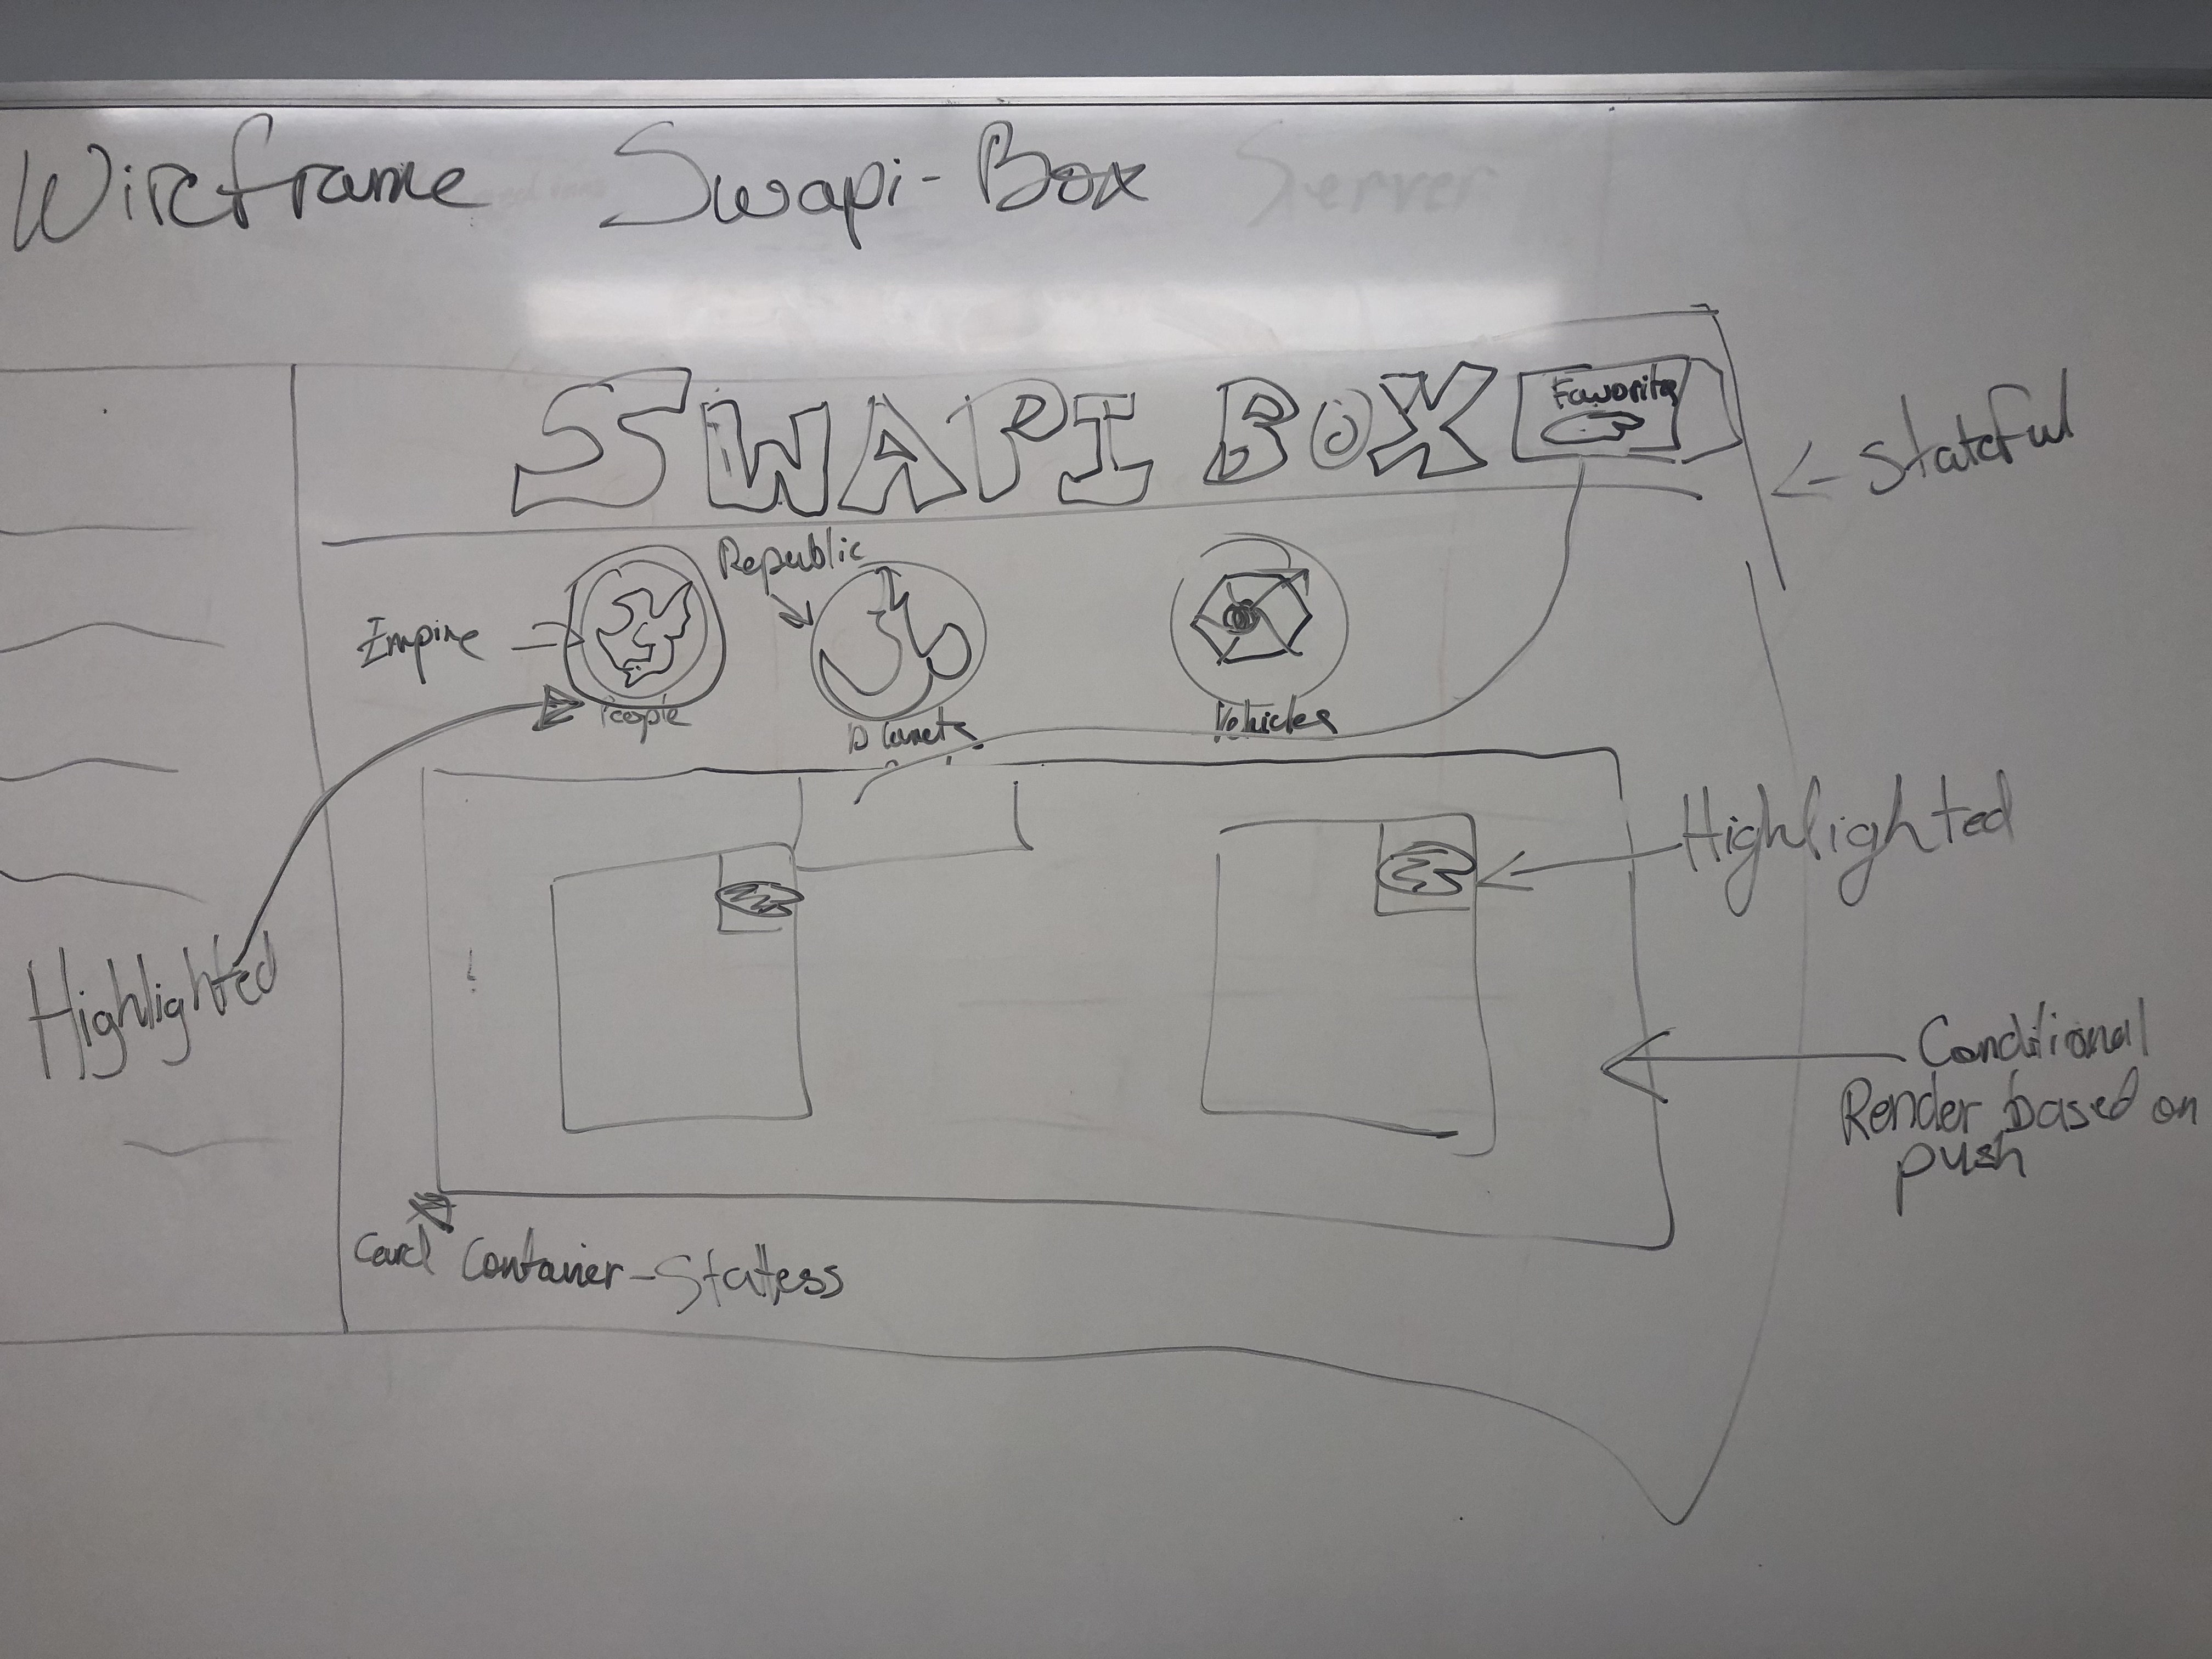 Wireframe Swapi-Box Server
SWAPI BOX
Favorites
← Stateful
Republic
Empire
People
Planets
Vehicles
Highlighted
Highlighted
Conditional
Render based on
push
Card Container-Statless